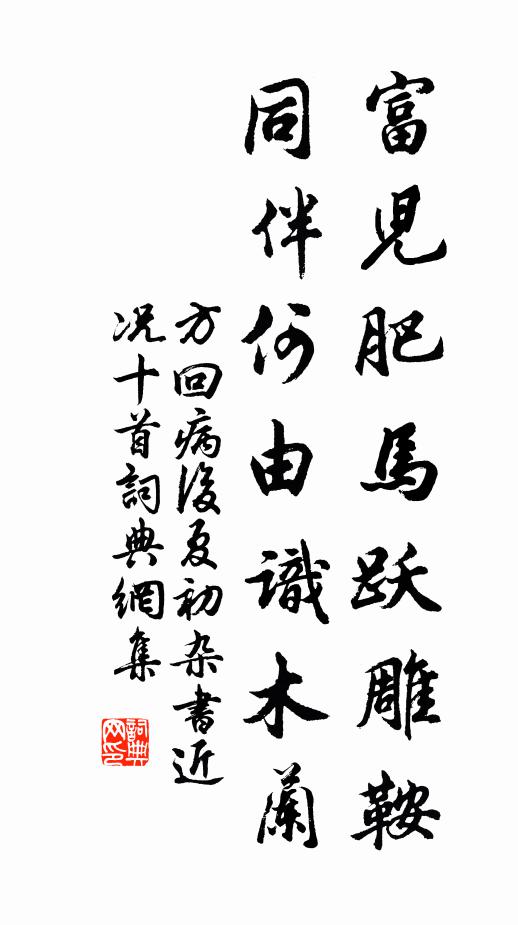 富児肥馬跃雕鞍
同伴何由識木蘭
方回病後夏初杂書近
况十首詞典網集
詞典
网印